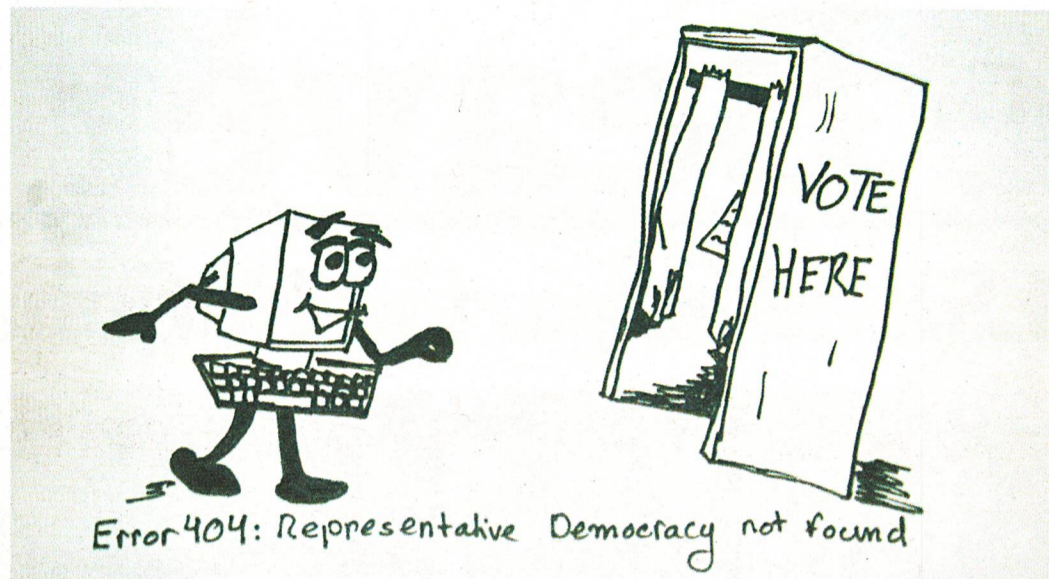 VOTE
HERE
Error 404: Representative Democracy not found